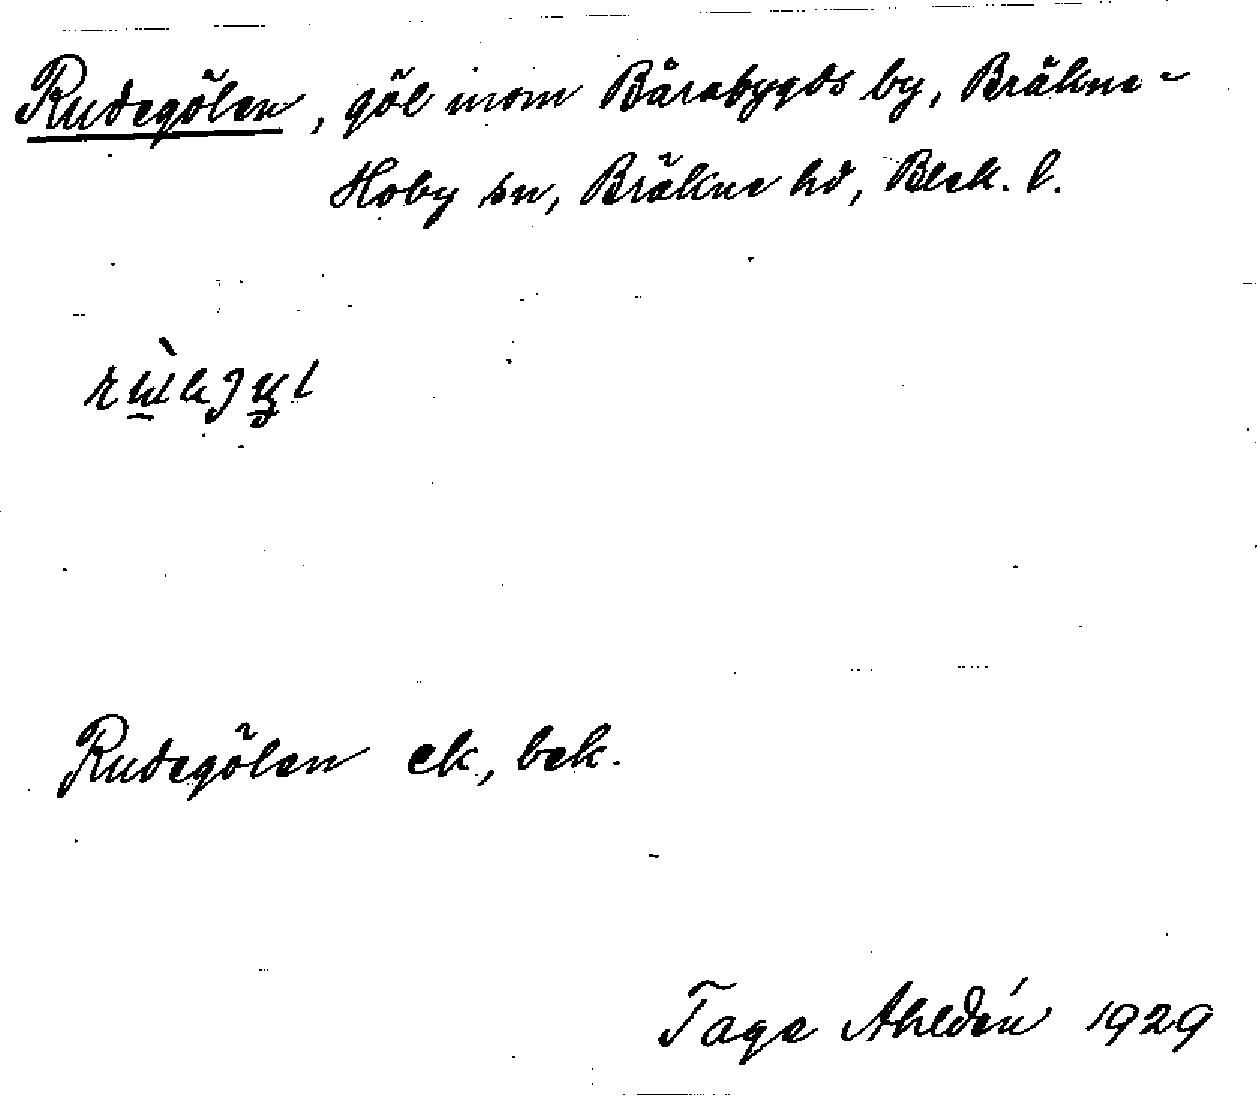 Rudegölen, göl inom Bårabygds by, Bräkne-
Hoby sn, Bräkne hd, Blek. l.
Rudegölen ek, bek.
Tage Ahldén 1929